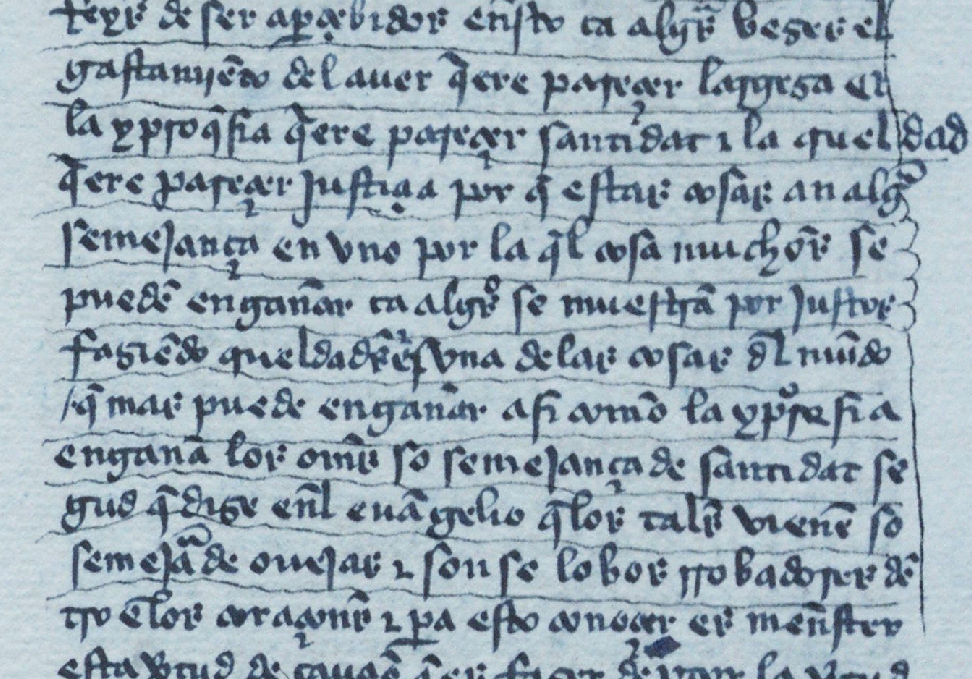 reys de ser aꝑçebidos en̄sto ca algs̄ veses el
gastamiēto del aver q̄ere pareçer largesa ⁊
la ypocq̄sia q̄ere pareçer santidat ⁊ la crueldad
q̄ere pareçer justiçia por q̄ estas cosas an algā
semejança en vno por la q̄l cosa muchos se
puedē engañar ca algs̄ se muestrā por justos
fasiēdo crueldades ⁊ es vna delas cosas dl̄ mūdo
q̄ mas puede engañar asi como la ypocresia
engaña los om̄s so semejança de santidat se
gud q̄ dise en̄l euāgelio q̄ los tales vienē so
semejāça de ovejas ⁊ son se lobos rrobadores dē
tro ēlos coraçones ⁊ ꝑa esto conoçer es menester
esta v̄tud de